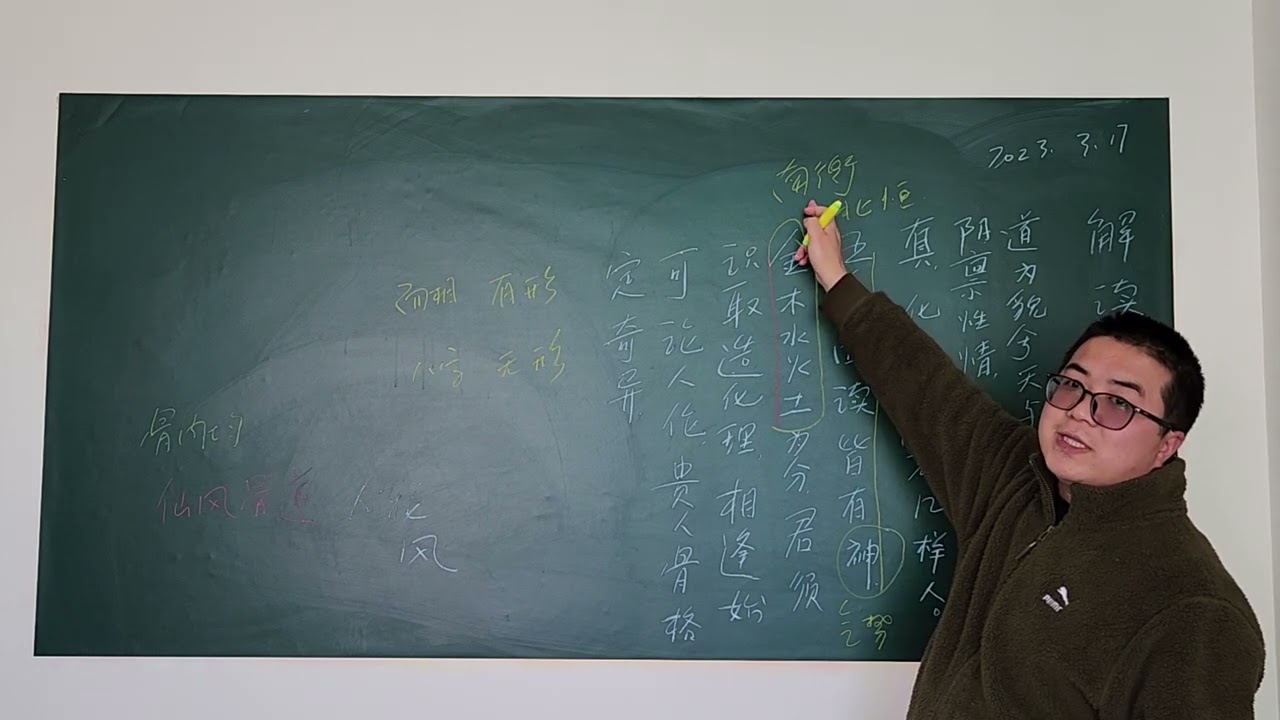 2023. 3. 17
解读
道为貌兮天与
阴禀性情
真 化 几样人。
五 四读皆有神
金木水火土为分 君须
识取造化理 相逢始
可论人伦 贵人骨格
定奇异
南衡
北恒
气势
面相 有形
八字 无形
骨肉均
仙风骨道
风
PUMA